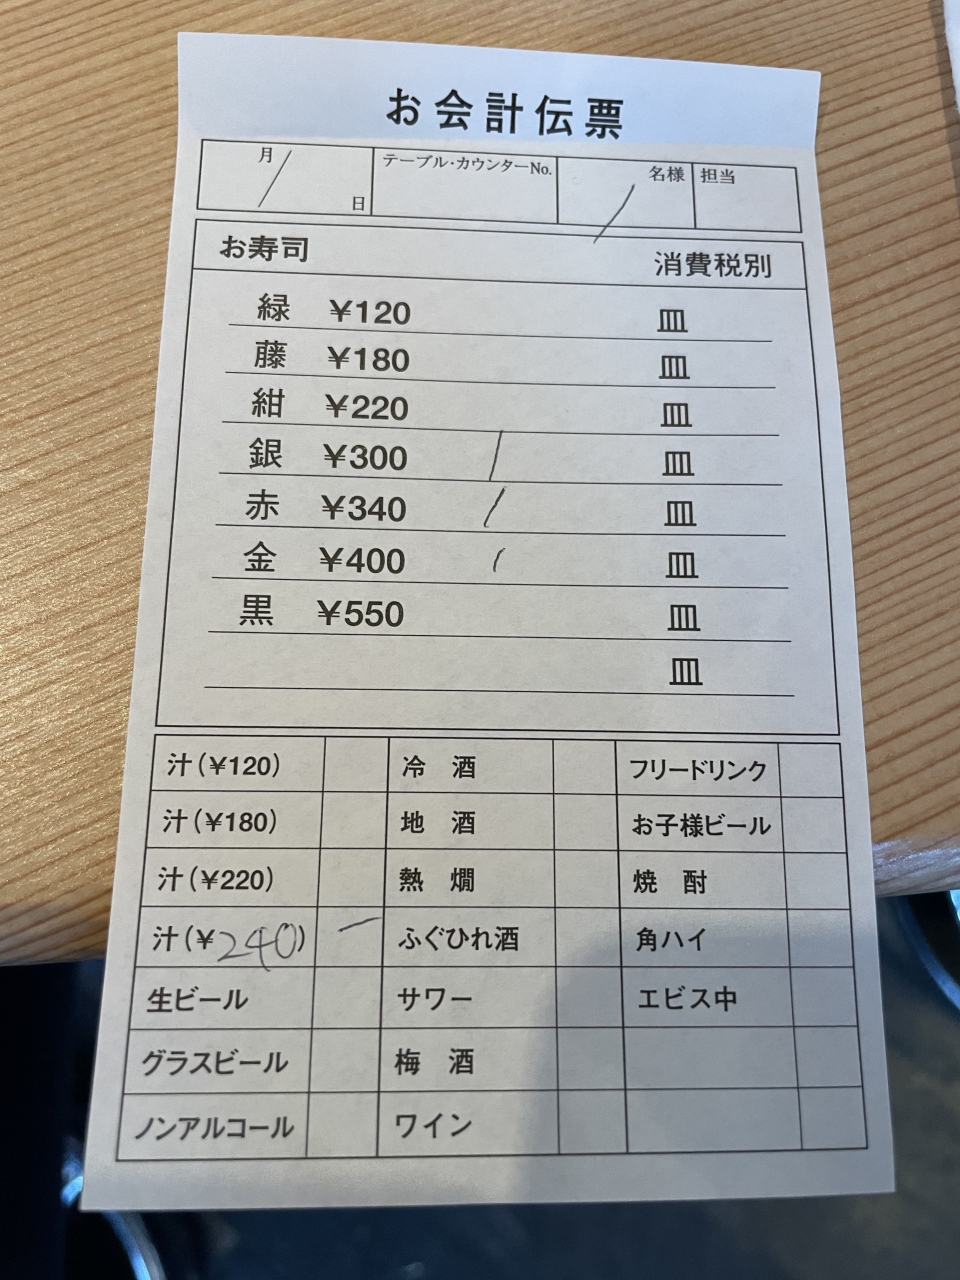 お会計伝票
月/日 テーブル・カウンターNo. / 名様 担当
お寿司 消費税別
緑 ¥120 皿
藤 ¥180 皿
紺 ¥220 皿
銀 ¥300 / 皿
赤 ¥340 / 皿
金 ¥400 / 皿
黒 ¥550 皿
皿
汁(¥120) 冷酒 フリードリンク
汁(¥180) 地酒 お子様ビール
汁(¥220) 熱燗 焼酎
汁(¥240) 一 ふぐひれ酒 角ハイ
生ビール サワー エビス中
グラスビール 梅酒
ノンアルコール ワイン